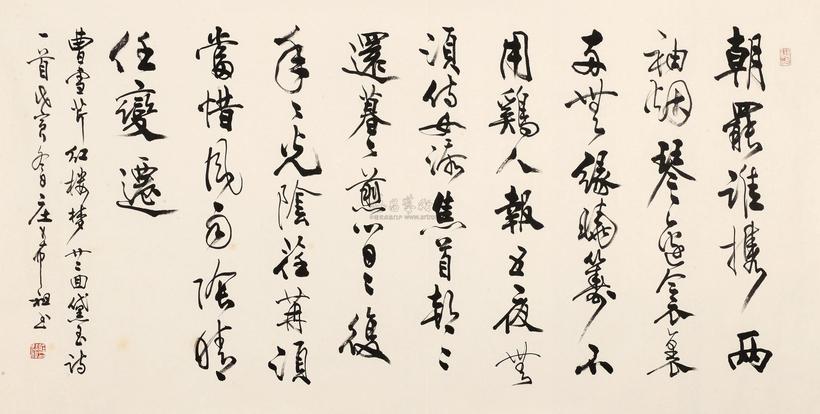 朝罷誰携兩
袖烟琴邊衾裏
兩無緣曉籌不
用鷄人報五夜無
須侍女添焦首朝々
還暮々煎心日々復
年々光陰荏苒須
當惜風雨陰晴
任變遷
曹雪芹红楼梦廿二回黛玉诗
一首戊寅冬日庄希祖书